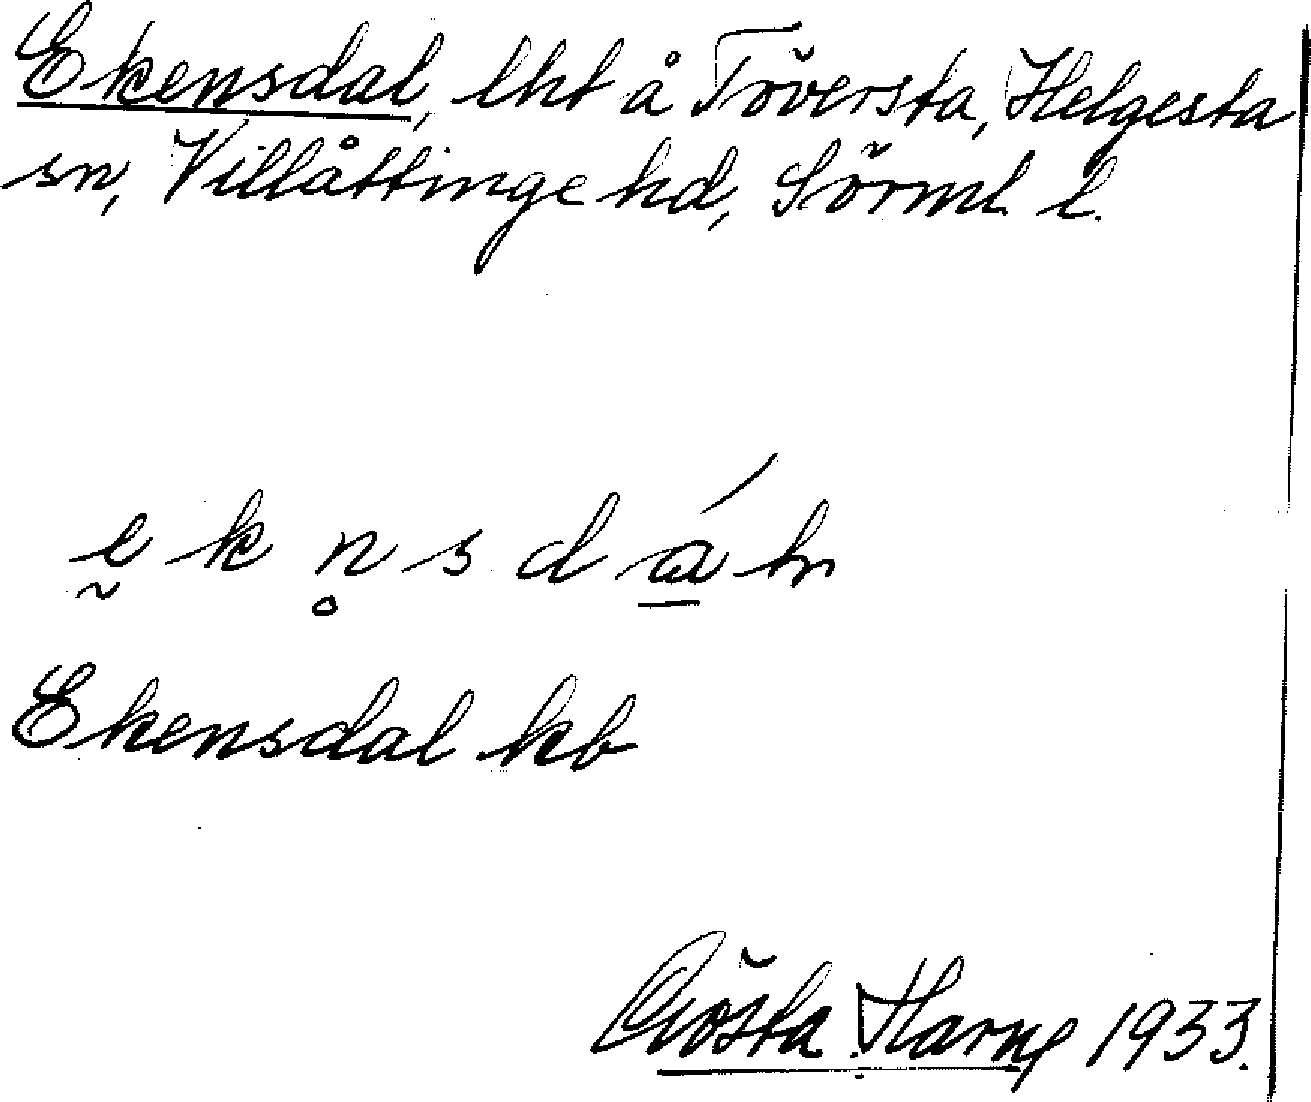 Ekensdal, lht å Töversta, Helgesta
sn, Villåttinge hd, Sörml l.
ḛ k n̥ s d a̱̍ ln
Ekensdal kb
Gösta Harne 1933.